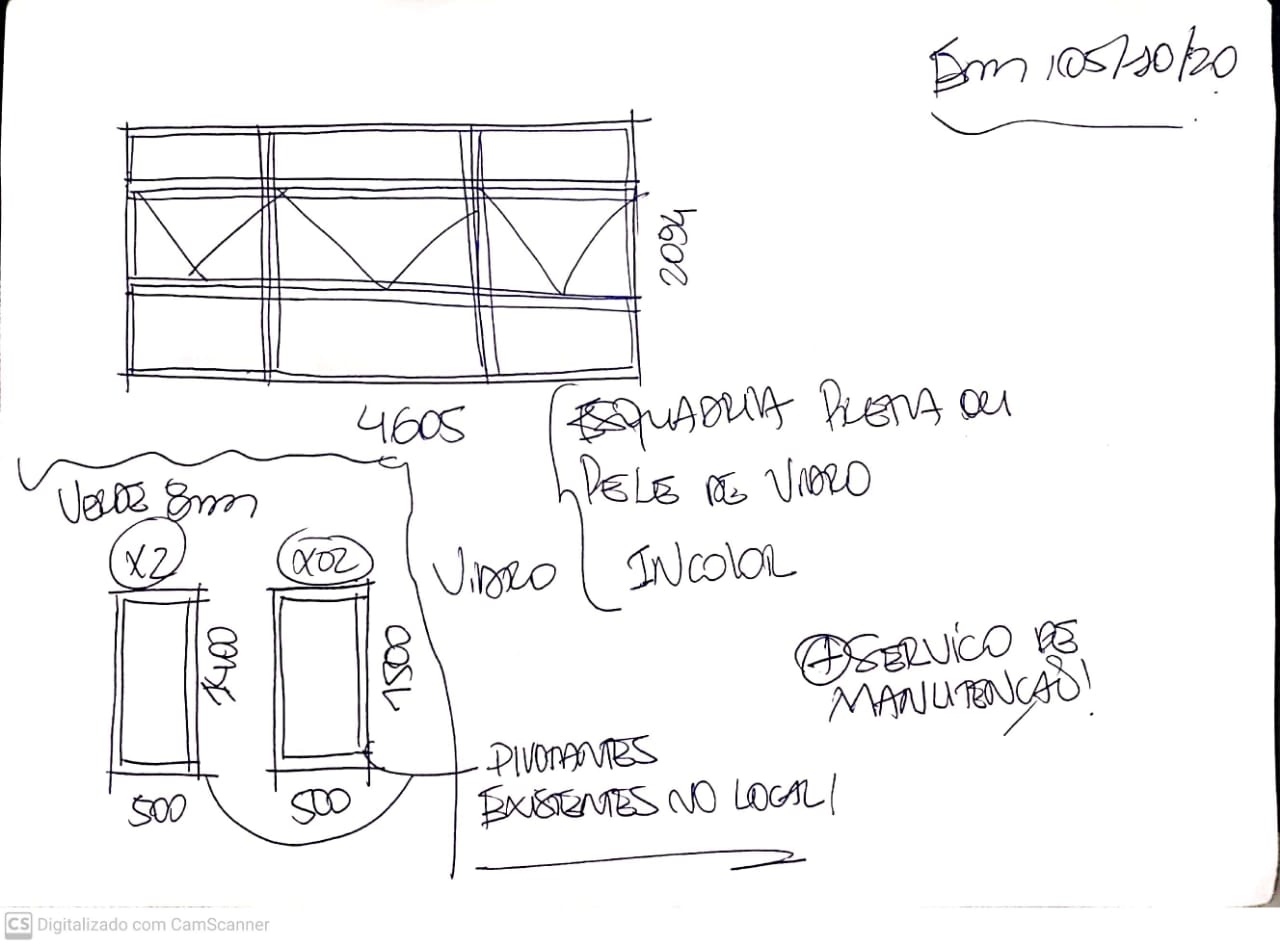 Em 05/10/20
2094
4605
ESQUADRIA PRETA OU
PELE DE VIDRO
VIDRO
INCOLOR
VERDE 8mm
X2
X02
1400
1500
500
500
+ SERVICO DE
MANUTENÇÃO!
PIVOTANTES
EXISTENTES NO LOCAL/
CS Digitalizado com CamScanner